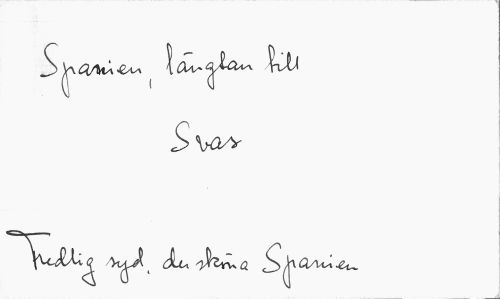 Spanien, längtan till
Svar
Fredlig syd, du sköna Spanien